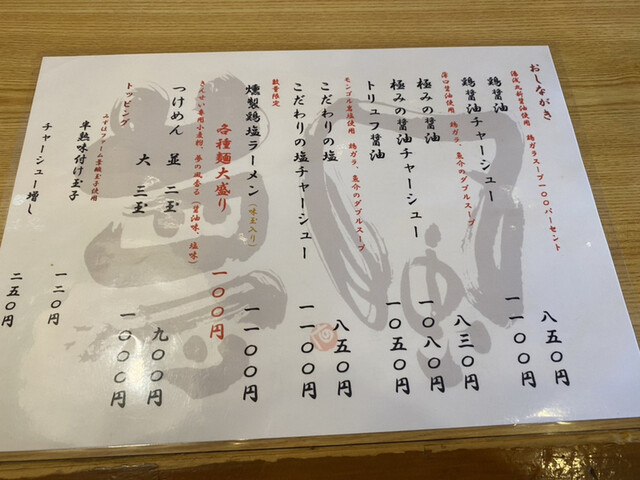 おしながき
湯浅丸新醤油使用 鶏ガラスープ一〇〇パーセント
鶏醤油 八五〇円
鶏醤油チャーシュー 一一〇〇円
薄口醤油使用 鶏ガラ、魚介のダブルスープ
極みの醤油 八三〇円
極みの醤油チャーシュー 一〇八〇円
トリュフ醤油 一〇五〇円
モンゴル岩塩使用 鶏ガラ、魚介のダブルスープ
こだわりの塩 八五〇円
こだわりの塩チャーシュー 一一〇〇円
数量限定
燻製鶏塩ラーメン(味玉入り) 一一〇〇円
各種麺大盛り 一〇〇円
つけめん専用小麦粉、夢の風香る(醤油味、塩味)
つけめん 並 二玉 九〇〇円
大 三玉 一〇〇〇円
トッピング
半熟味付け玉子 一二〇円
チャーシュー増し 二五〇円